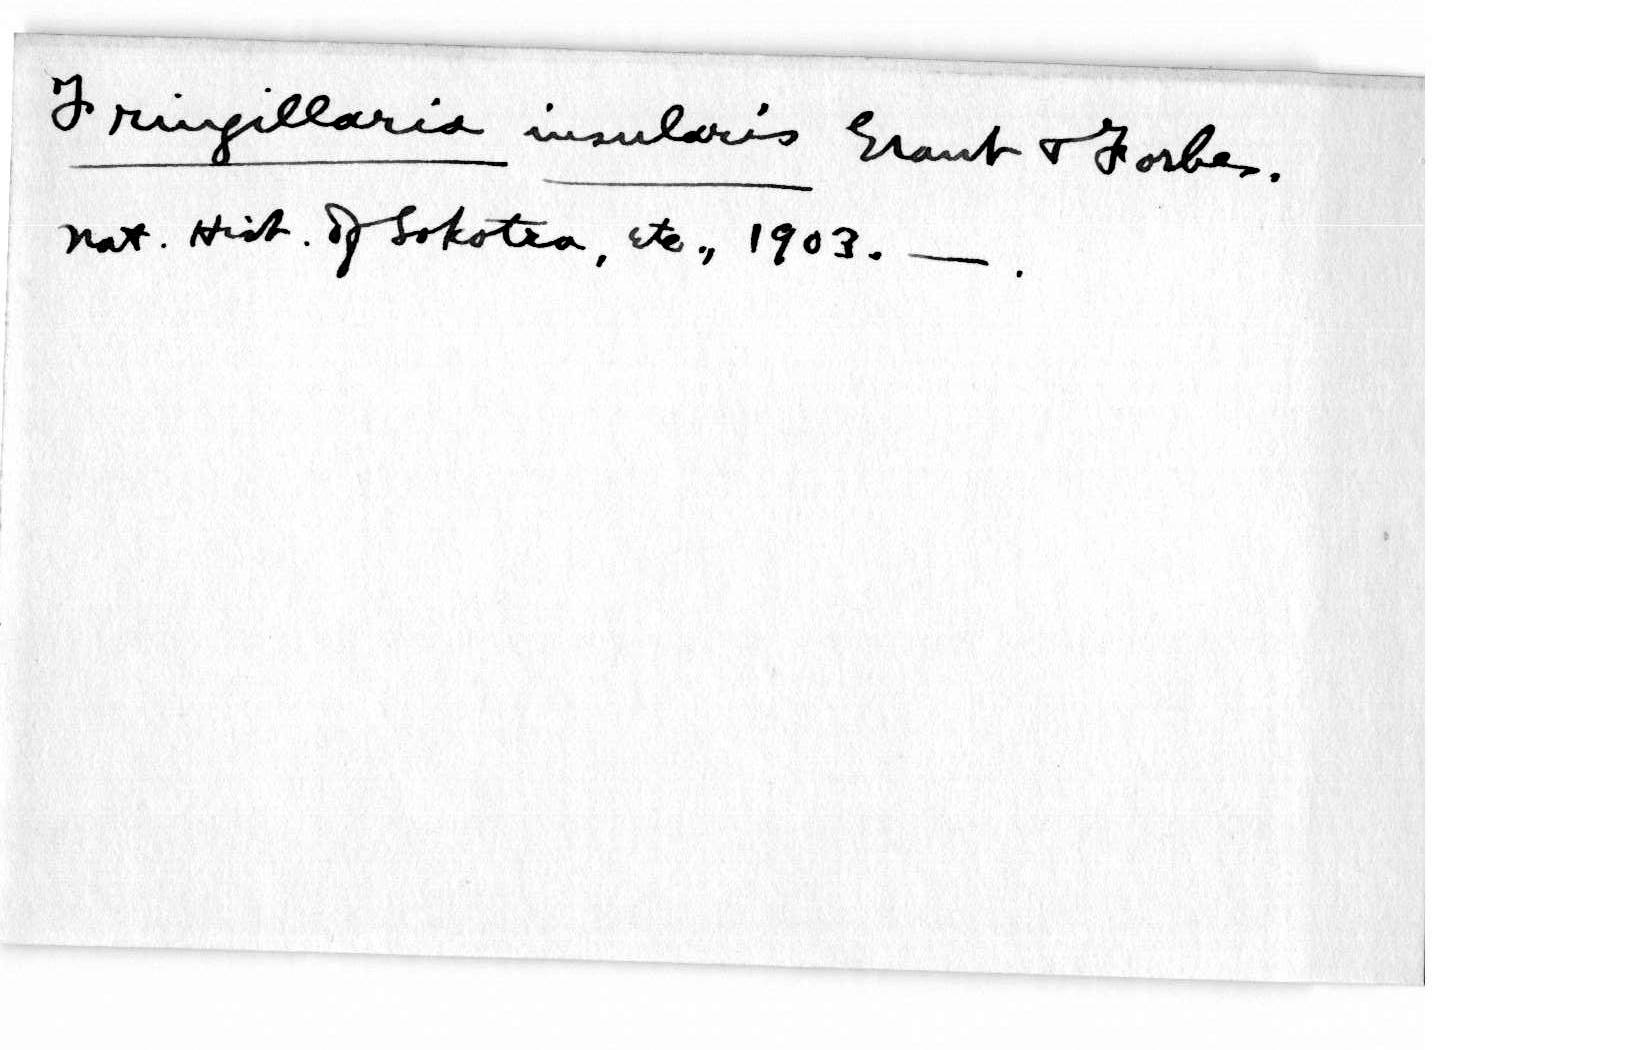 Fringillaria insularis Grant & Forbes.
Nat. Hist. of Sokotra, etc., 1903. — .